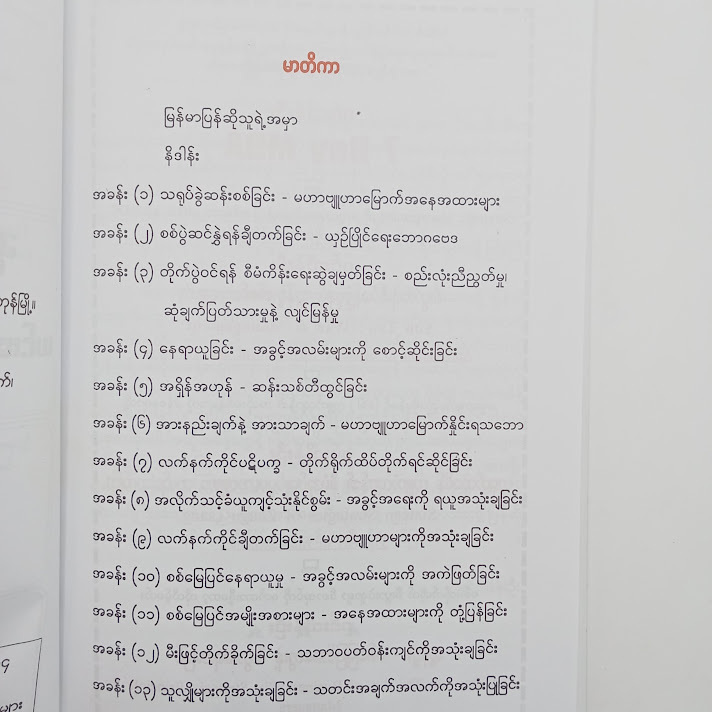 မာတိကာ
မြန်မာပြန်ဆိုသူရဲ့အမှာ
နိဒါန်း
အခန်း (၁) သရုပ်ခွဲဆန်းစစ်ခြင်း - မဟာဗျူဟာမြောက်အနေအထားများ
အခန်း (၂) စစ်ပွဲဆင်နွှဲရန်ချီတက်ခြင်း - ယှဉ်ပြိုင်ရေးဘောဂဗေဒ
အခန်း (၃) တိုက်ပွဲဝင်ရန် စီမံကိန်းရေးဆွဲချမှတ်ခြင်း - စည်းလုံးညီညွတ်မှု၊
ဆုံးချက်ပြတ်သားမှုနဲ့ လျင်မြန်မှု
အခန်း (၄) နေရာယူခြင်း - အခွင့်အလမ်းများကို စောင့်ဆိုင်းခြင်း
အခန်း (၅) အရှိန်အဟုန် - ဆန်းသစ်တီထွင်ခြင်း
အခန်း (၆) အားနည်းချက်နဲ့ အားသာချက် - မဟာဗျူဟာမြောက်နှိုင်းရသဘော
အခန်း (၇) လက်နက်ကိုင်ပဋိပက္ခ - တိုက်ရိုက်ထိပ်တိုက်ရင်ဆိုင်ခြင်း
အခန်း (၈) အလိုက်သင့်ခံယူကျင့်သုံးနိုင်စွမ်း - အခွင့်အရေးကို ရယူအသုံးချခြင်း
အခန်း (၉) လက်နက်ကိုင်ချီတက်ခြင်း - မဟာဗျူဟာများကိုအသုံးချခြင်း
အခန်း (၁၀) စစ်မြေပြင်နေရာယူမှု - အခွင့်အလမ်းများကို အကဲဖြတ်ခြင်း
အခန်း (၁၁) စစ်မြေပြင်အမျိုးအစားများ - အနေအထားများကို တုံ့ပြန်ခြင်း
အခန်း (၁၂) မီးဖြင့်တိုက်ခိုက်ခြင်း - သဘာဝပတ်ဝန်းကျင်ကိုအသုံးချခြင်း
အခန်း (၁၃) သူလျှိုများကိုအသုံးချခြင်း - သတင်းအချက်အလက်ကိုအသုံးပြုခြင်း